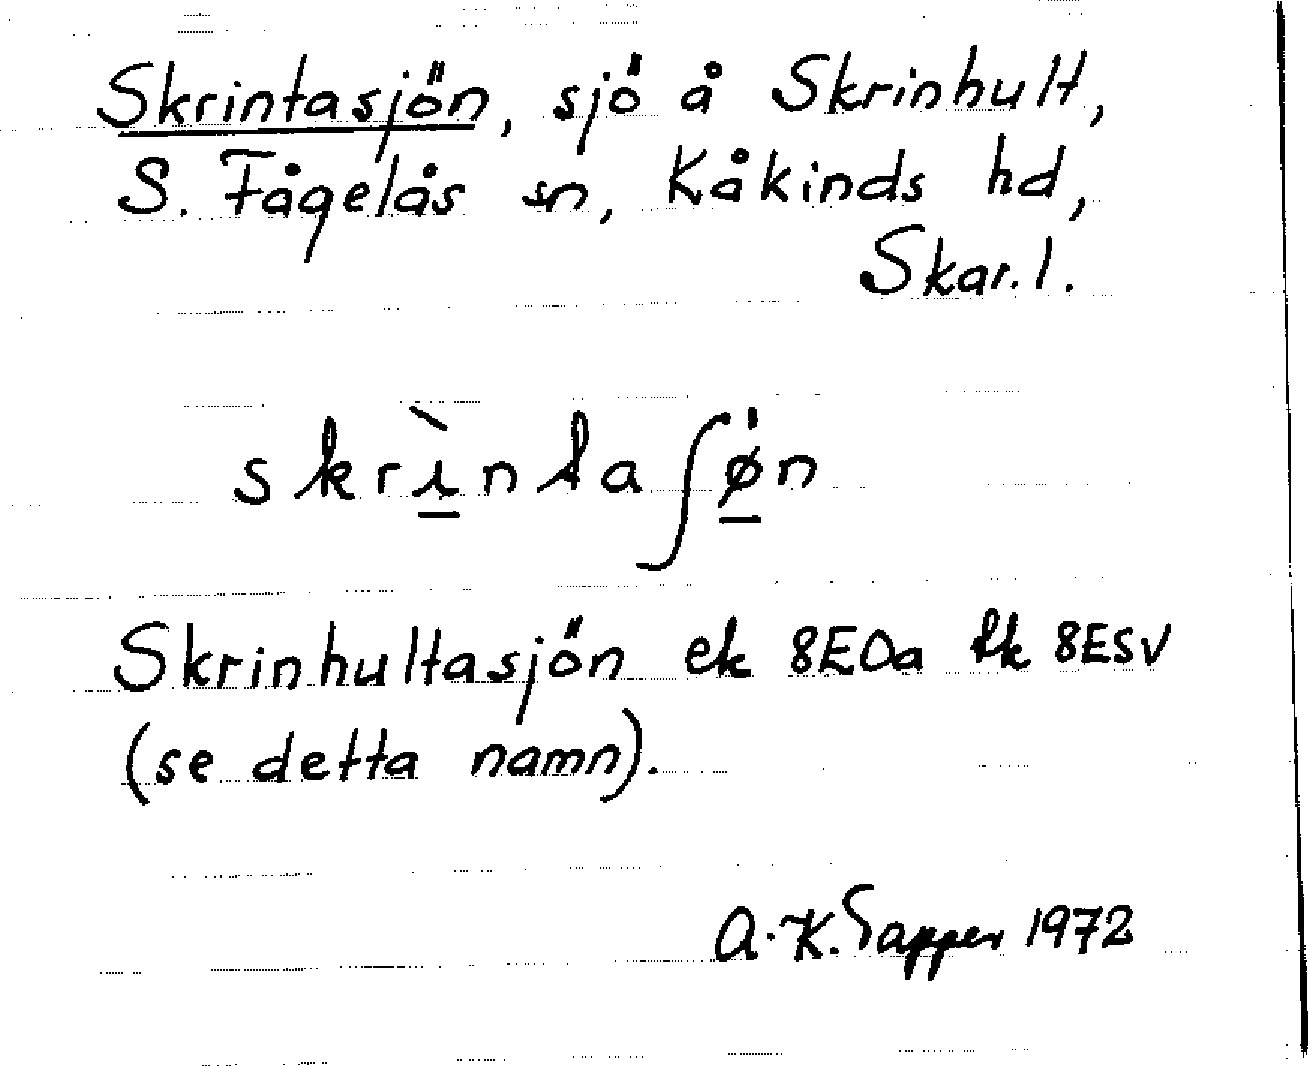 Skrintasjön, sjö å Skrinhult,
S. Fågelås sn, Kåkinds hd,
Skar. l.
skrì̱ntaʃø̱̍n
Skrinhultasjön ek 8EOa tk 8ESV
(se detta namn).
A.-K. Tapper 1972